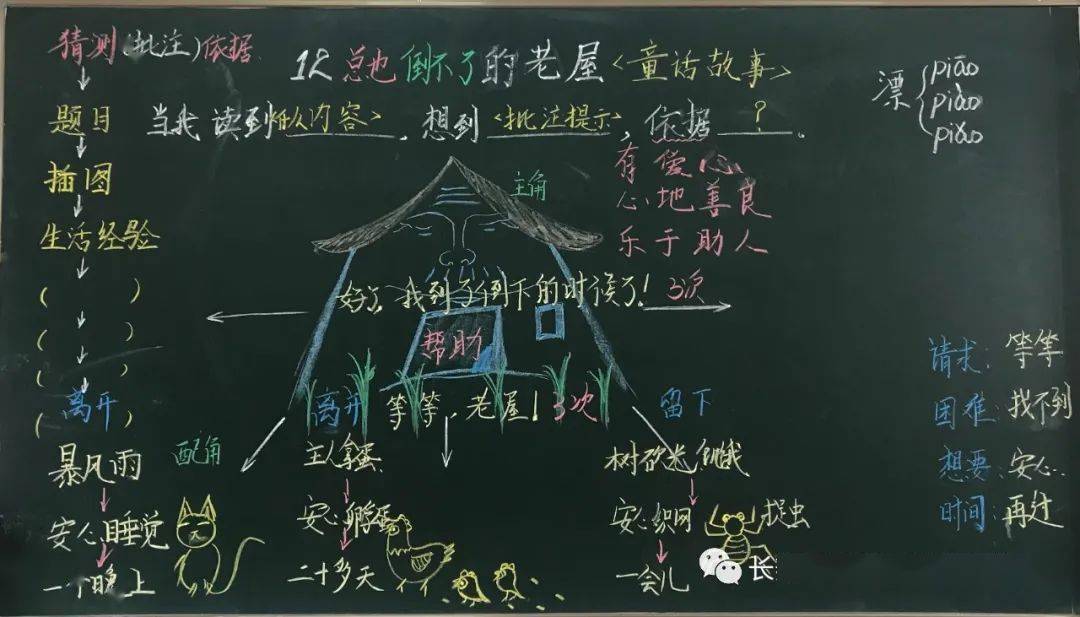 猜测(批注)依据
题目
插图
生活经验
(  )
(  )
(  )
(  )
12 总也倒不了的老屋<童话故事>
当我读到<什么内容>,想到<批注提示>,依据 ? 。
漂 { piāo
piào
piǎo
主角
有爱心
心地善良
乐于助人
好了,我到了倒下的时候了! 3次
帮助
离开 离开 等等,老屋! 3次 留下
配角
暴风雨
安心睡觉
一个晚上
主人拿蛋
安心孵蛋
二十多天
树砍光 饿
安心织网 捉虫
一会儿
请求:等等
困难:找不到
想要:安心…
时间:再过
长